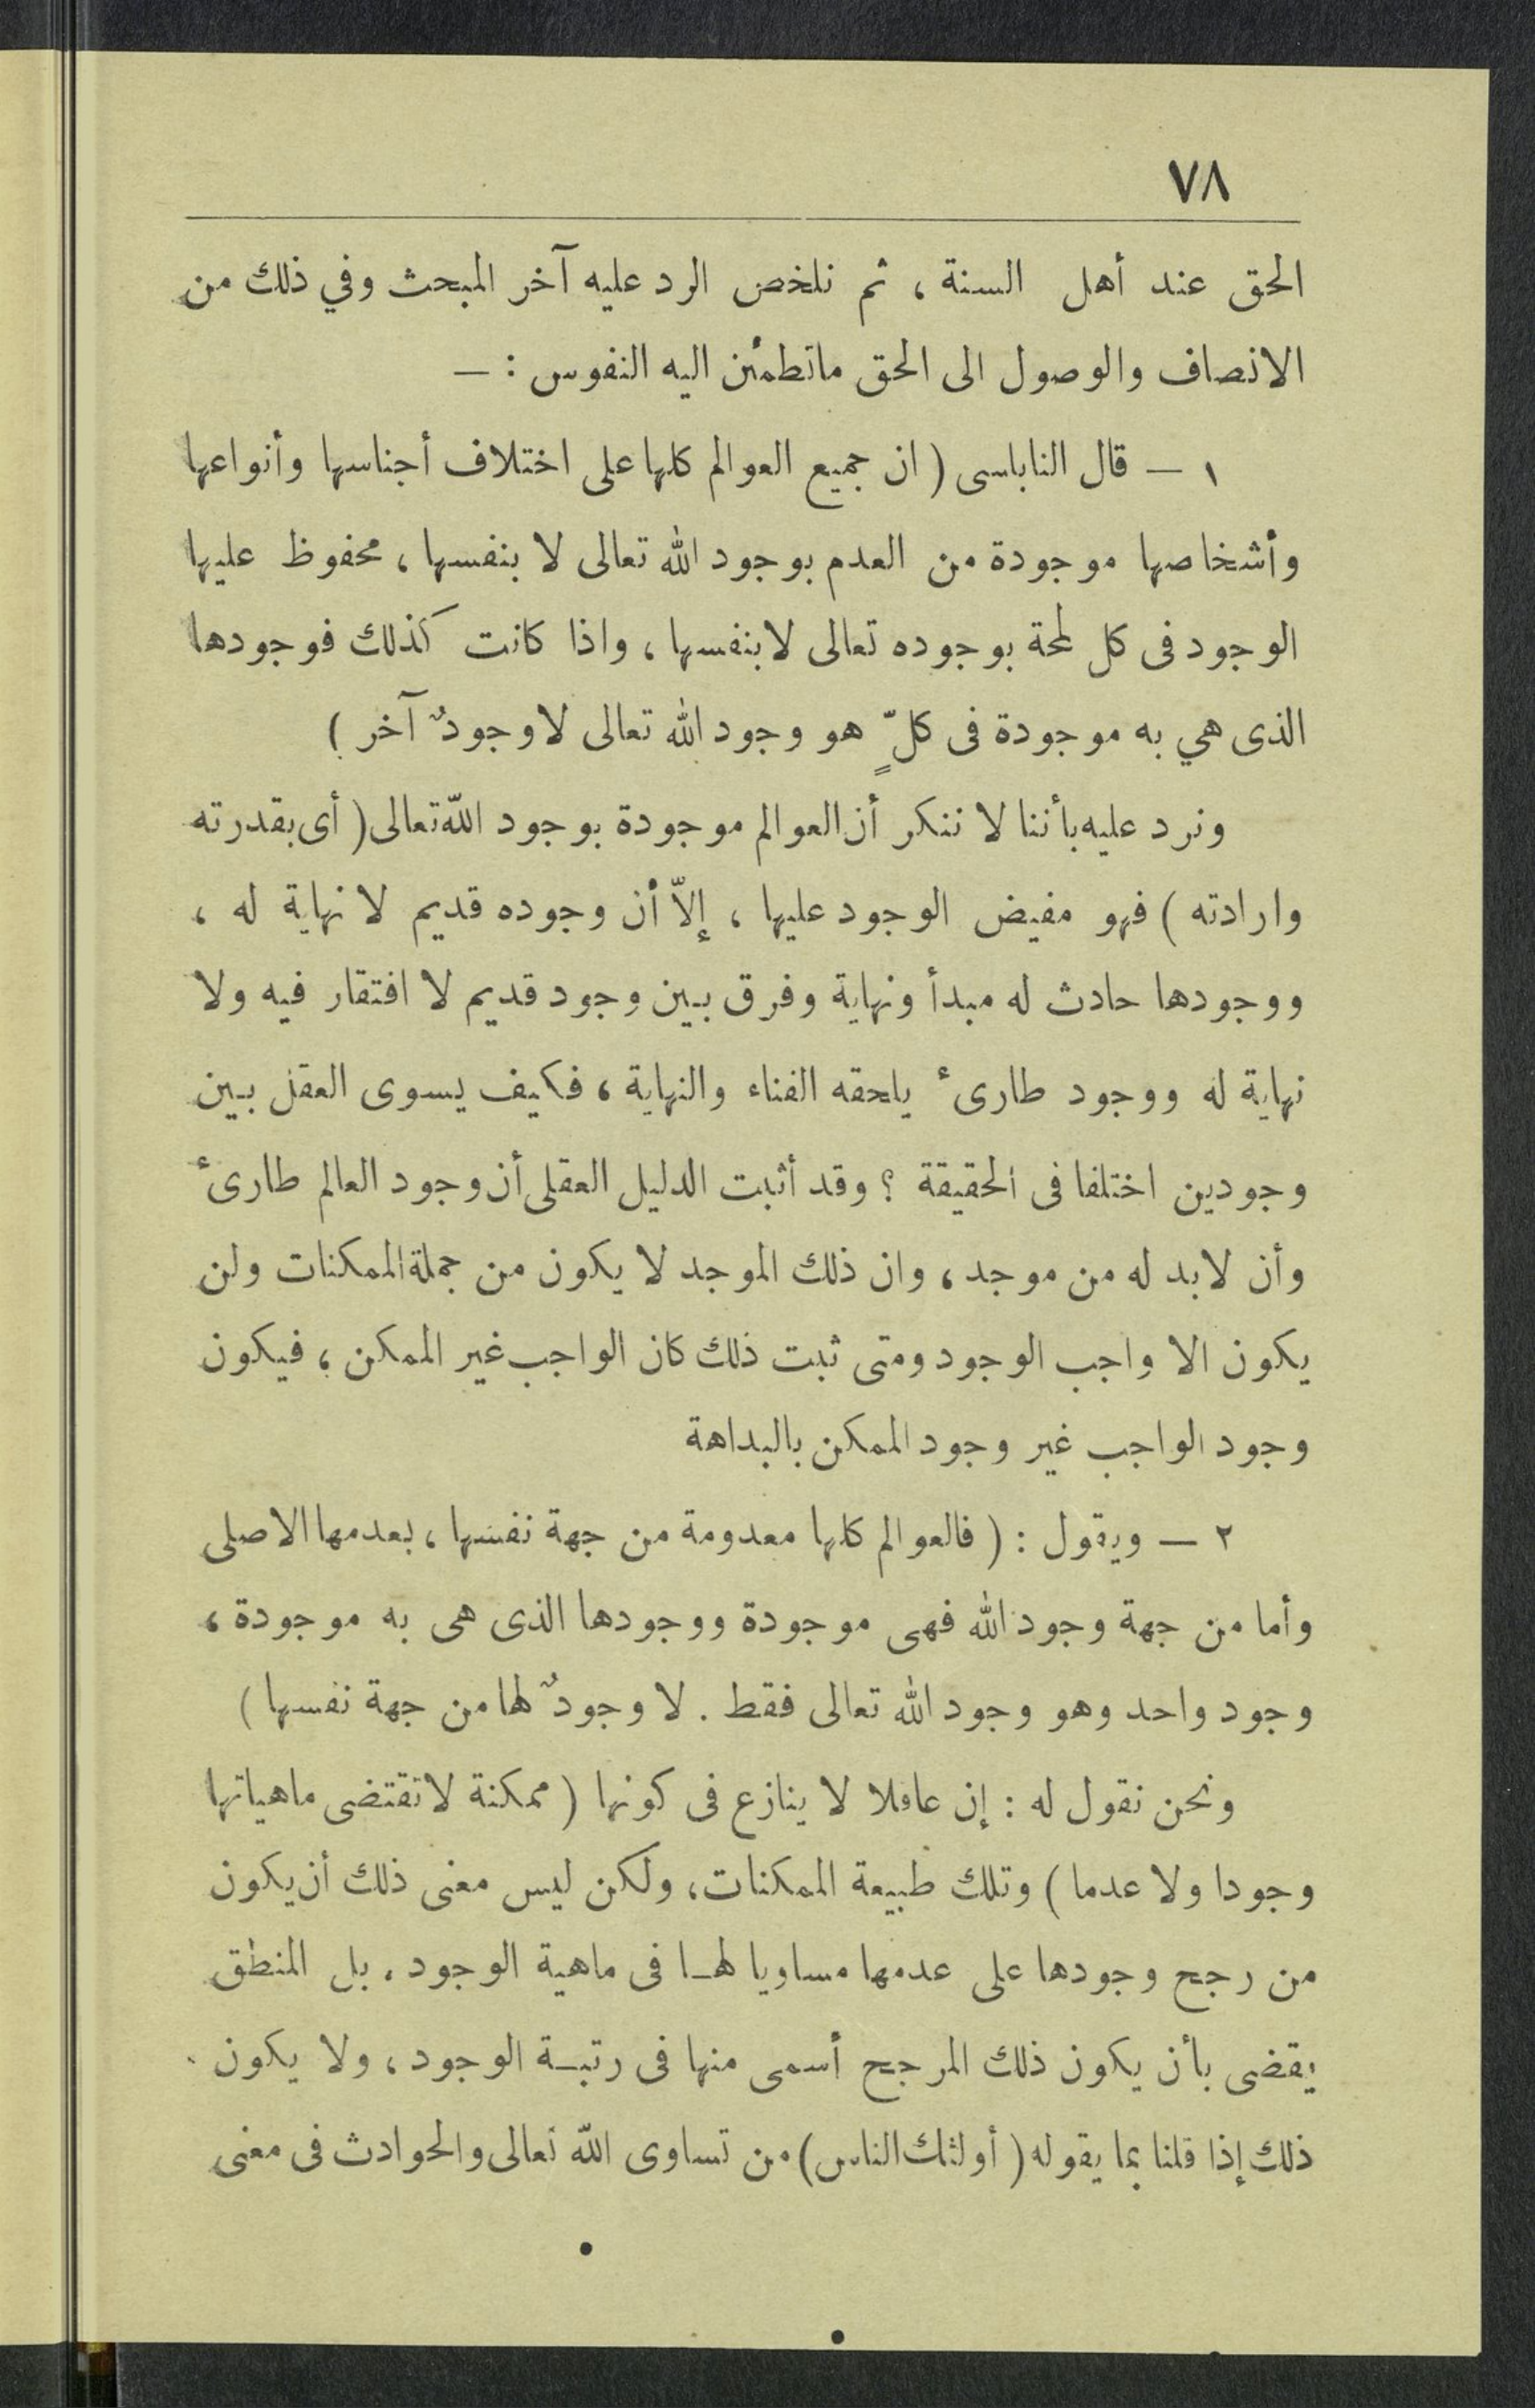 ٧٨
الحق عند أهل السنة ، ثم نلخص الرد عليه آخر المبحث وفي ذلك من
الانصاف والوصول الى الحق ماتطمئن اليه النفوس : —
١ — قال النابلسى ( ان جميع العوالم كلها على اختلاف أجناسها وأنواعها
وأشخاصها موجودة من العدم بوجود الله تعالى لا بنفسها ، محفوظ عليها
الوجود فى كل لمحة بوجوده تعالى لا بنفسها ، واذا كانت كذلك فوجودها
الذى هي به موجودة فى كلٍّ هو وجود الله تعالى لا وجودٌ آخر )
ونرد عليه بأننا لا ننكر أن العوالم موجودة بوجود الله تعالى ( أى بقدرته
وارادته ) فهو مفيض الوجود عليها ، إلاّ أن وجوده قديم لا نهاية له ،
ووجودها حادث له مبدأ ونهاية وفرق بين وجود قديم لا افتقار فيه ولا
نهاية له ووجود طارىء يلحقه الفناء والنهاية ، فكيف يسوى العقل بين
وجودين اختلفا فى الحقيقة ؟ وقد أثبت الدليل العقلى أن وجود العالم طارىء
وأن لابد له من موجد ، وان ذلك الموجد لا يكون من جملة الممكنات ولن
يكون الا واجب الوجود ومتى ثبت ذلك كان الواجب غير الممكن ، فيكون
وجود الواجب غير وجود الممكن بالبداهة
٢ — ويقول : ( فالعوالم كلها معدومة من جهة نفسها ، بعدمها الاصلى
وأما من جهة وجود الله فهى موجودة ووجودها الذى هى به موجودة ،
وجود واحد وهو وجود الله تعالى فقط . لا وجودٌ لها من جهة نفسها )
ونحن نقول له : إن عاقلا لا ينازع فى كونها ( ممكنة لا تقتضى ماهياتها
وجودا ولا عدما ) وتلك طبيعة الممكنات ، ولكن ليس معنى ذلك أن يكون
من رجح وجودها على عدمها مساويا لها فى ماهية الوجود . بل المنطق
يقضى بأن يكون ذلك المرجح أسمى منها فى رتبة الوجود ، ولا يكون
ذلك إذا قلنا بما يقوله ( أولئك الناس ) من تساوى الله تعالى والحوادث فى معنى